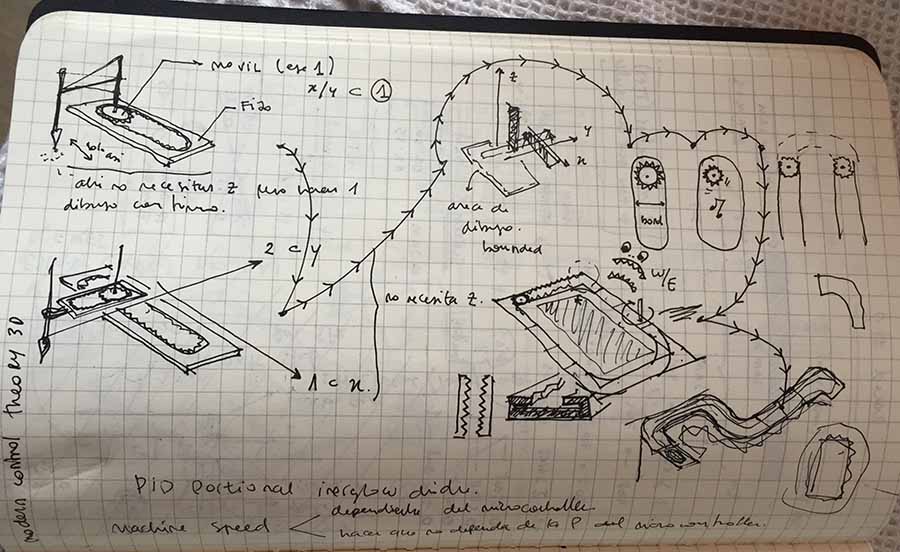 movil (eje 1)
x/y ⊂ ①
Fijo
solo así
ahí no necesitas z pero haces 1
dibujo continuo.
z
y
x
area de
dibujo.
bounded
bord
2 ⊂ y
W/E
no necesita z.
1 ⊂ x.
modern control theory 3D
PID
machine speed
dependiente del microcontroller
hacer que no dependa de la P del microcontroller.